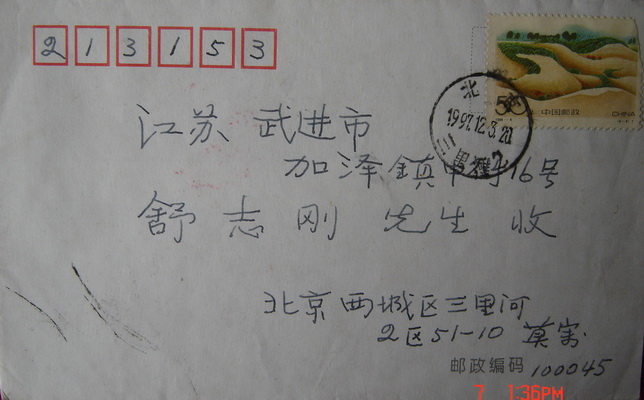 213153
50
中国邮政 CHINA
北
1997.12.3.20
三里河
江苏 武进市
加泽鎮中街16号
舒志刚 先生 收
北京西城区三里河
2区51-10 莫宻
邮政编码 100045
7 1:36PM